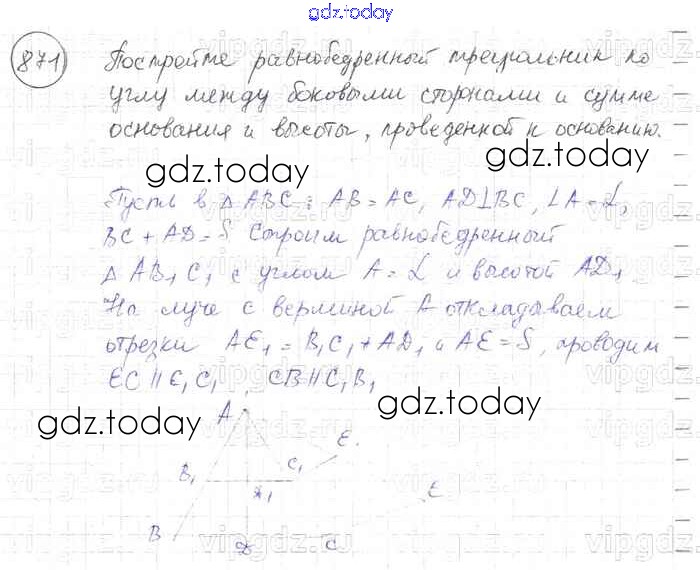 gdz.today
871 Постройте равнобедренный треугольник по
углу между боковыми сторонами и сумме
основания и высоты, проведенной к основанию.
gdz.today
gdz.today
Пусть в △ ABC: AB = AC, AD⊥BC, ∠A = α,
BC + AD = S Строим равнобедренный
△ AB₁C₁ с углом A = α и высотой AD₁
На луче с вершиной A откладываем
отрезки AE₁ = B₁C₁ + AD₁ и AE = S, проводим
EC || E₁C₁, CB || C₁B₁
gdz.today
gdz.today
A
E.
B₁
C₁
E
B
C
gdz.today
gdz.today